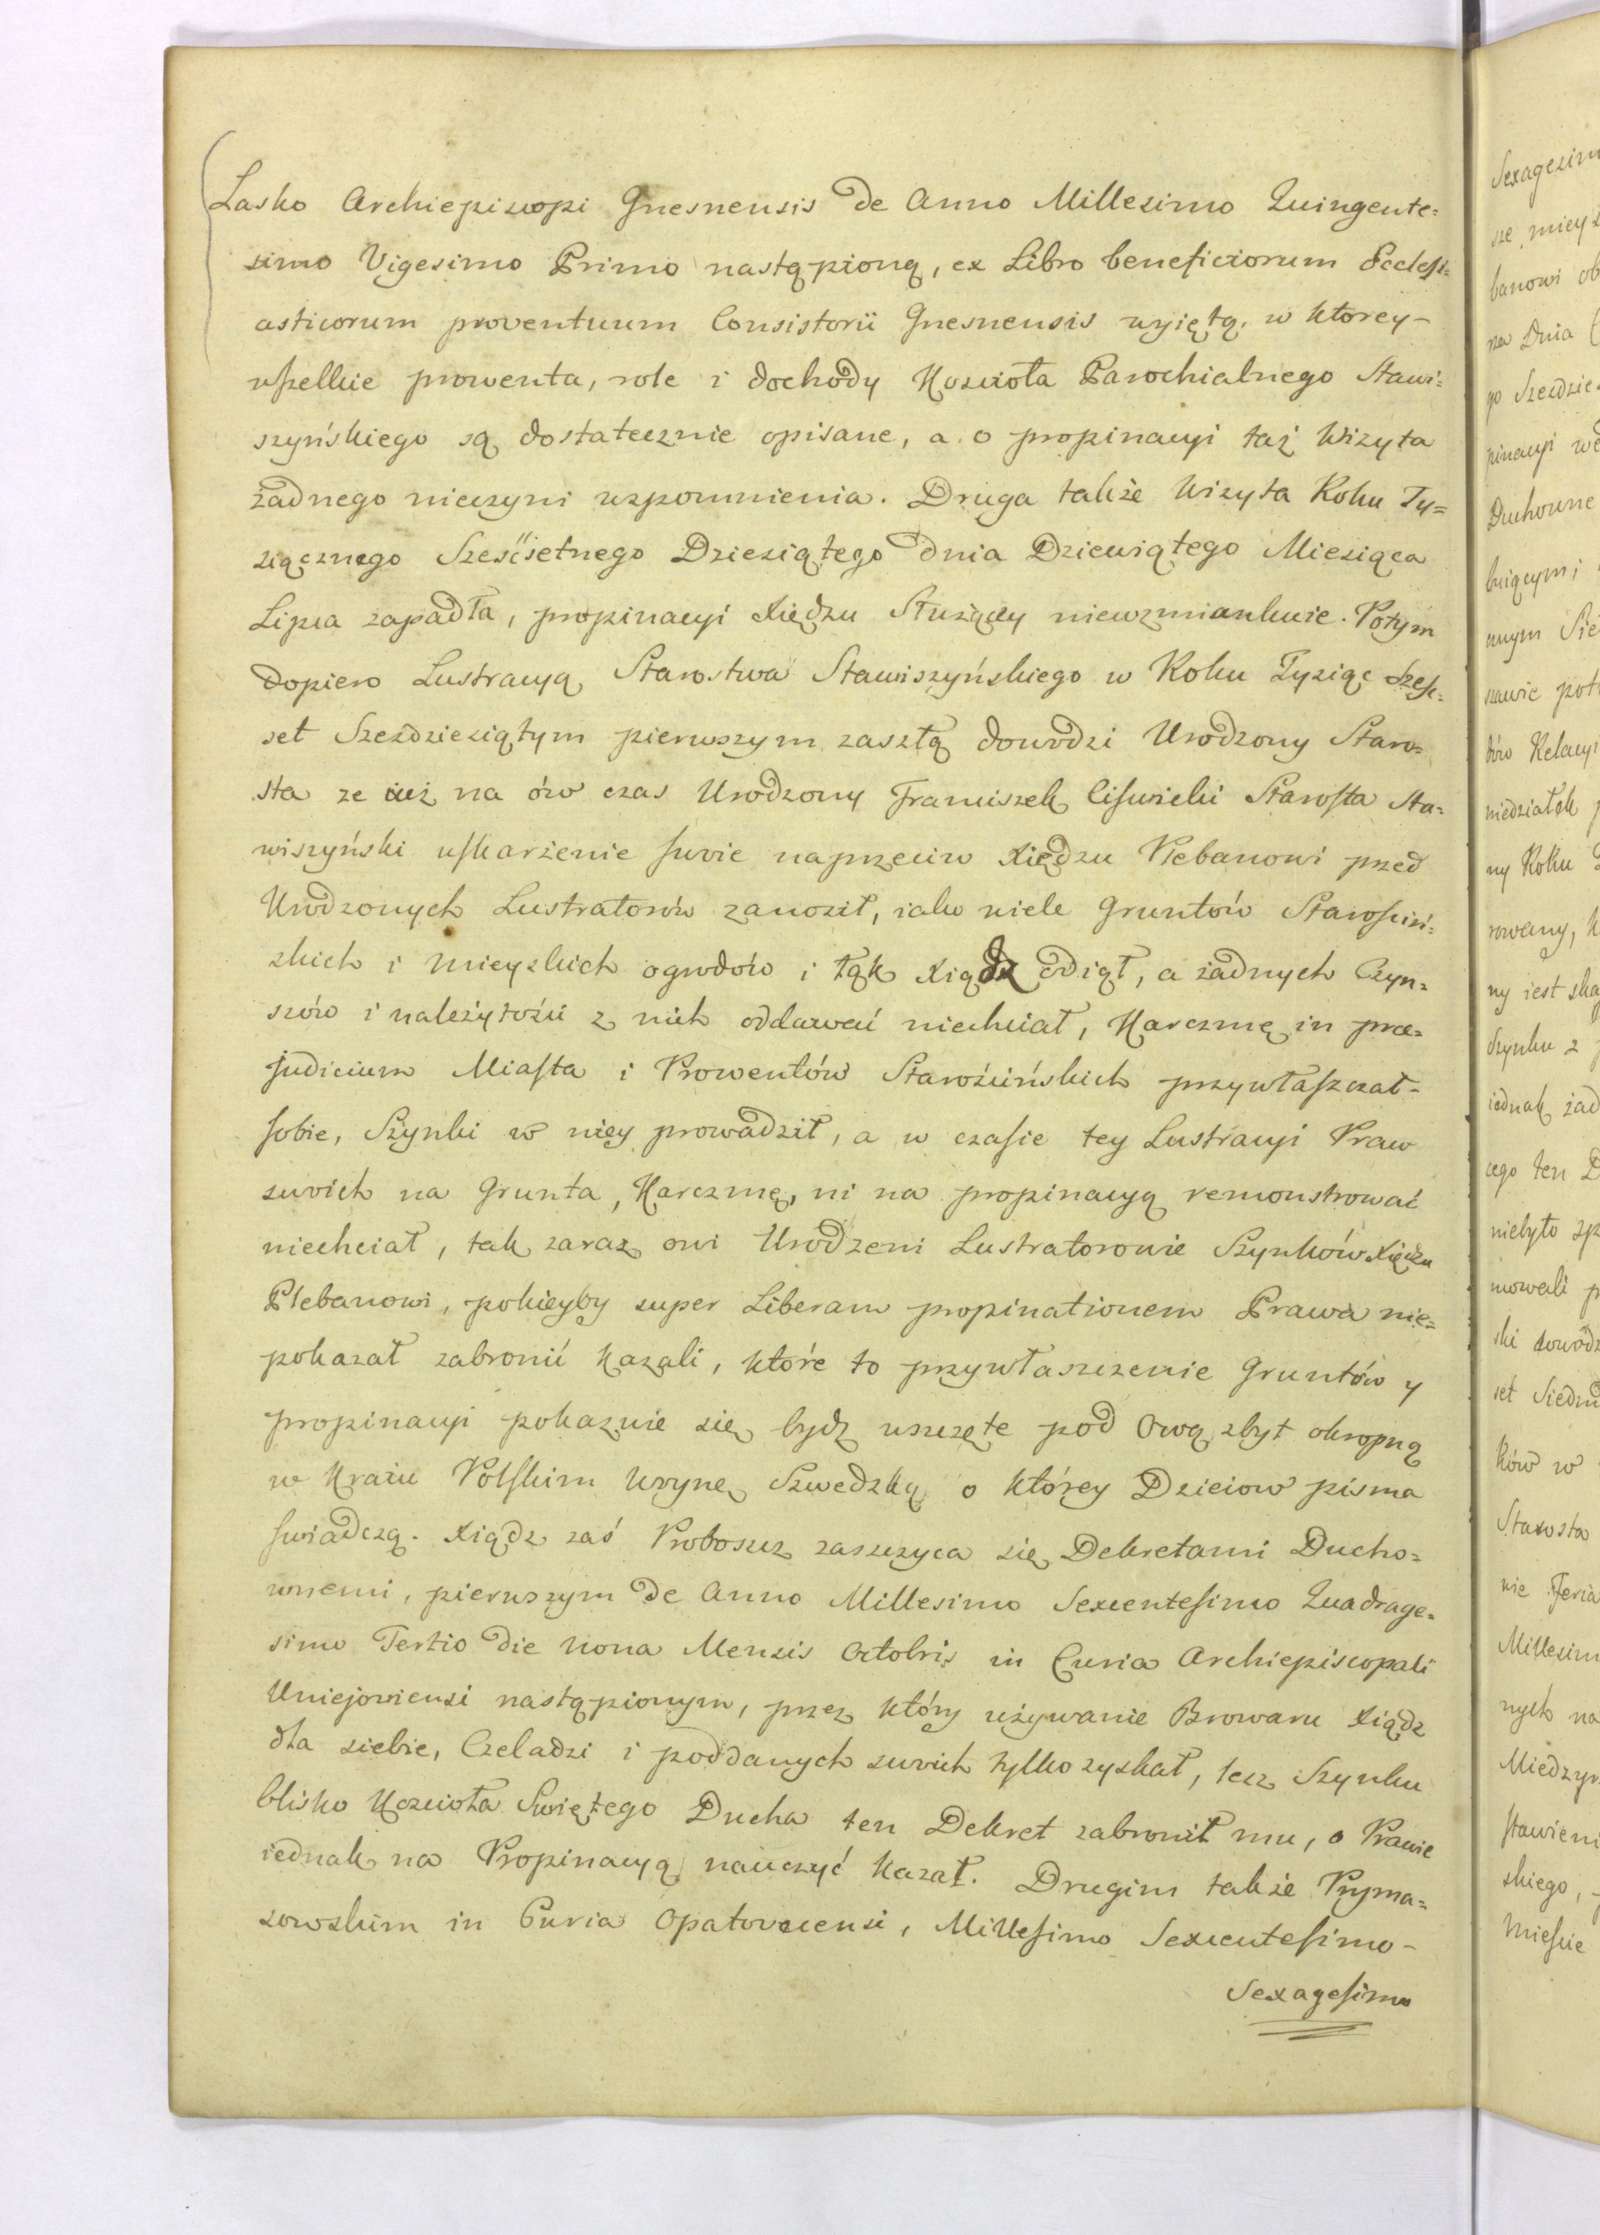 Lasko Archiepiscopi Gnesnensis de Anno Millesimo Quingente=
simo Vigesimo Primo nastąpioną, ex Libro beneficiorum Ecclesi=
asticorum proventuum Consistorii Gnesnensis wyiętą, w ktorey-
wszelkie prowenta, role i dochody Kościoła Parochialnego Stawi=
szyńskiego są dostatecznie opisane, a o propinacyi taż Wizyta
żadnego nieczyni wzpomnienia. Druga także Wizyta Roku Ty=
siącznego Sześćsetnego Dziesiątego dnia Dziewiątego Miesiąca
Lipca zapadła, propinacyi Xiędzu Służącey niewzmiankuie. Potym
dopiero Lustracyą Starostwa Stawiszyńskiego w Roku Tysiąc Szesc=
set Szezdziesiątym pierwszym zaszłą dowodzi Urodzony Staro=
sta ze iuż na ów czas Urodzony Franciszek Ciswicki Starosta Sta=
wiszyński uskarżenie swoie naprzeciw Xiędzu Plebanowi przed
Urodzonych Lustratorów zanosił, iako wiele Gruntów Starościń=
skich i mieyskich ogrodów i łąk Xiądz odiął, a żadnych Czyn=
szów i należytości z nich oddawać niechciał, Karczmę in prae=
judicium Miasta i Prowentów Starościńskich przywłaszczał-
sobie, Szynki w niey prowadził, a w czasie tey Lustracyi Praw
swoich na Grunta, Karczmę, ni na propinacyą remonstrować
niechciał, tak zaraz owi Urodzeni Lustratorowie Szynków Xiędzu
Plebanowi, pokieyby super Liberam propinationem Prawa nie=
pokazał zabronić kazali, które to przywłaszczenie Gruntów y
propinacyi pokazuie się bydz wszczęte pod Owę zbyt okropną
w Kraiu Polskim Woynę Szwedzką o którey Dzieiow pisma
swiadczą. Xiądz zaś Proboszcz zaszczyca się Dekretami Ducho=
wnemi, pierwszym de Anno Millesimo Sexcentesimo Quadrage=
simo Tertio die Nona Mensis Octobris in Curia Archiepiscopali
Uniejoviensi nastąpionym, przez który używanie Browaru Xiądz
dla siebie, Czeladzi i poddanych swoich tylko zyskał, lecz Szynku
blisko Kościoła Swiętego Ducha ten Dekret zabronił mu, o Prawie
iednak na Propinacyą nauczyć kazał. Drugim także Pryma=
sowskim in Curia Opatoviensi, Millesimo Sexcentesimo-
Sexagesimo